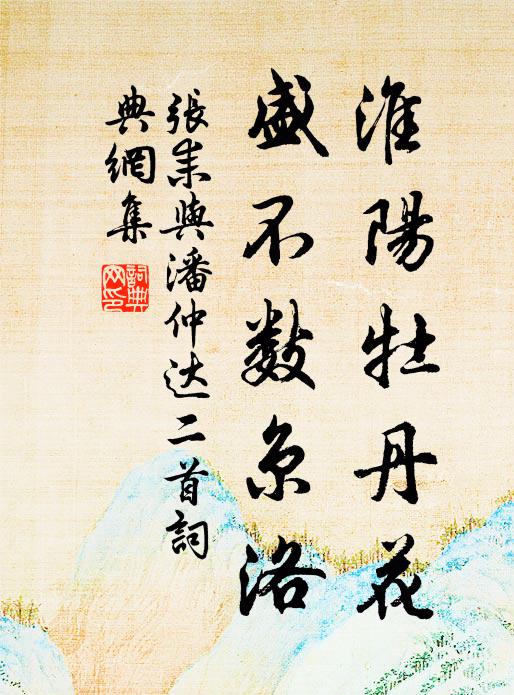 淮陽牡丹花
盛不数京洛
張耒與潘仲达二首詞
典網集
詞典
网印